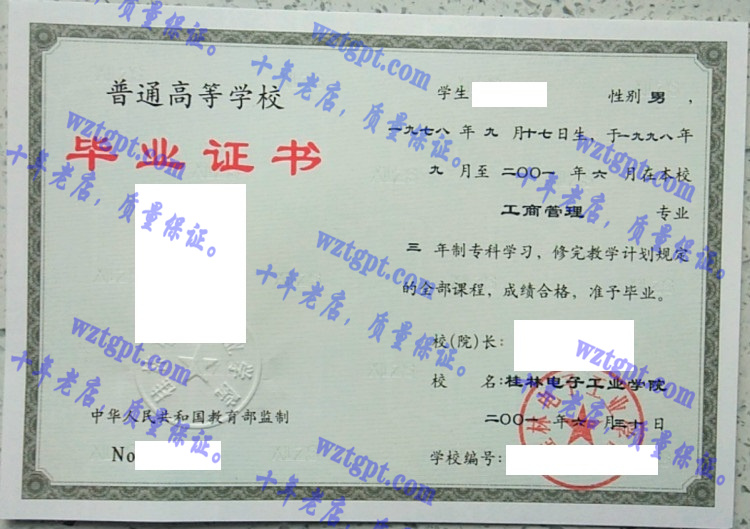 普通高等学校
毕业证书
中华人民共和国教育部监制
No
学生 性别 男，
一九七八 年 九 月十七日生，于一九九八年
九 月至 二〇〇一 年 六 月在本校
工商管理 专业
三 年制专科学习，修完教学计划规定
的全部课程，成绩合格，准予毕业。
校(院)长：
校 名：桂林电子工业学院
二〇〇一 年 六 月三十日
学校编号：
桂林电子工业学院
wztgpt.com
十年老店，质量保证。
wztgpt.com
十年老店，质量保证。
wztgpt.com
十年老店，质量保证。
wztgpt.com
十年老店，质量保证。
wztgpt.com
十年老店，质量保证。
wztgpt.com
十年老店，质量保证。